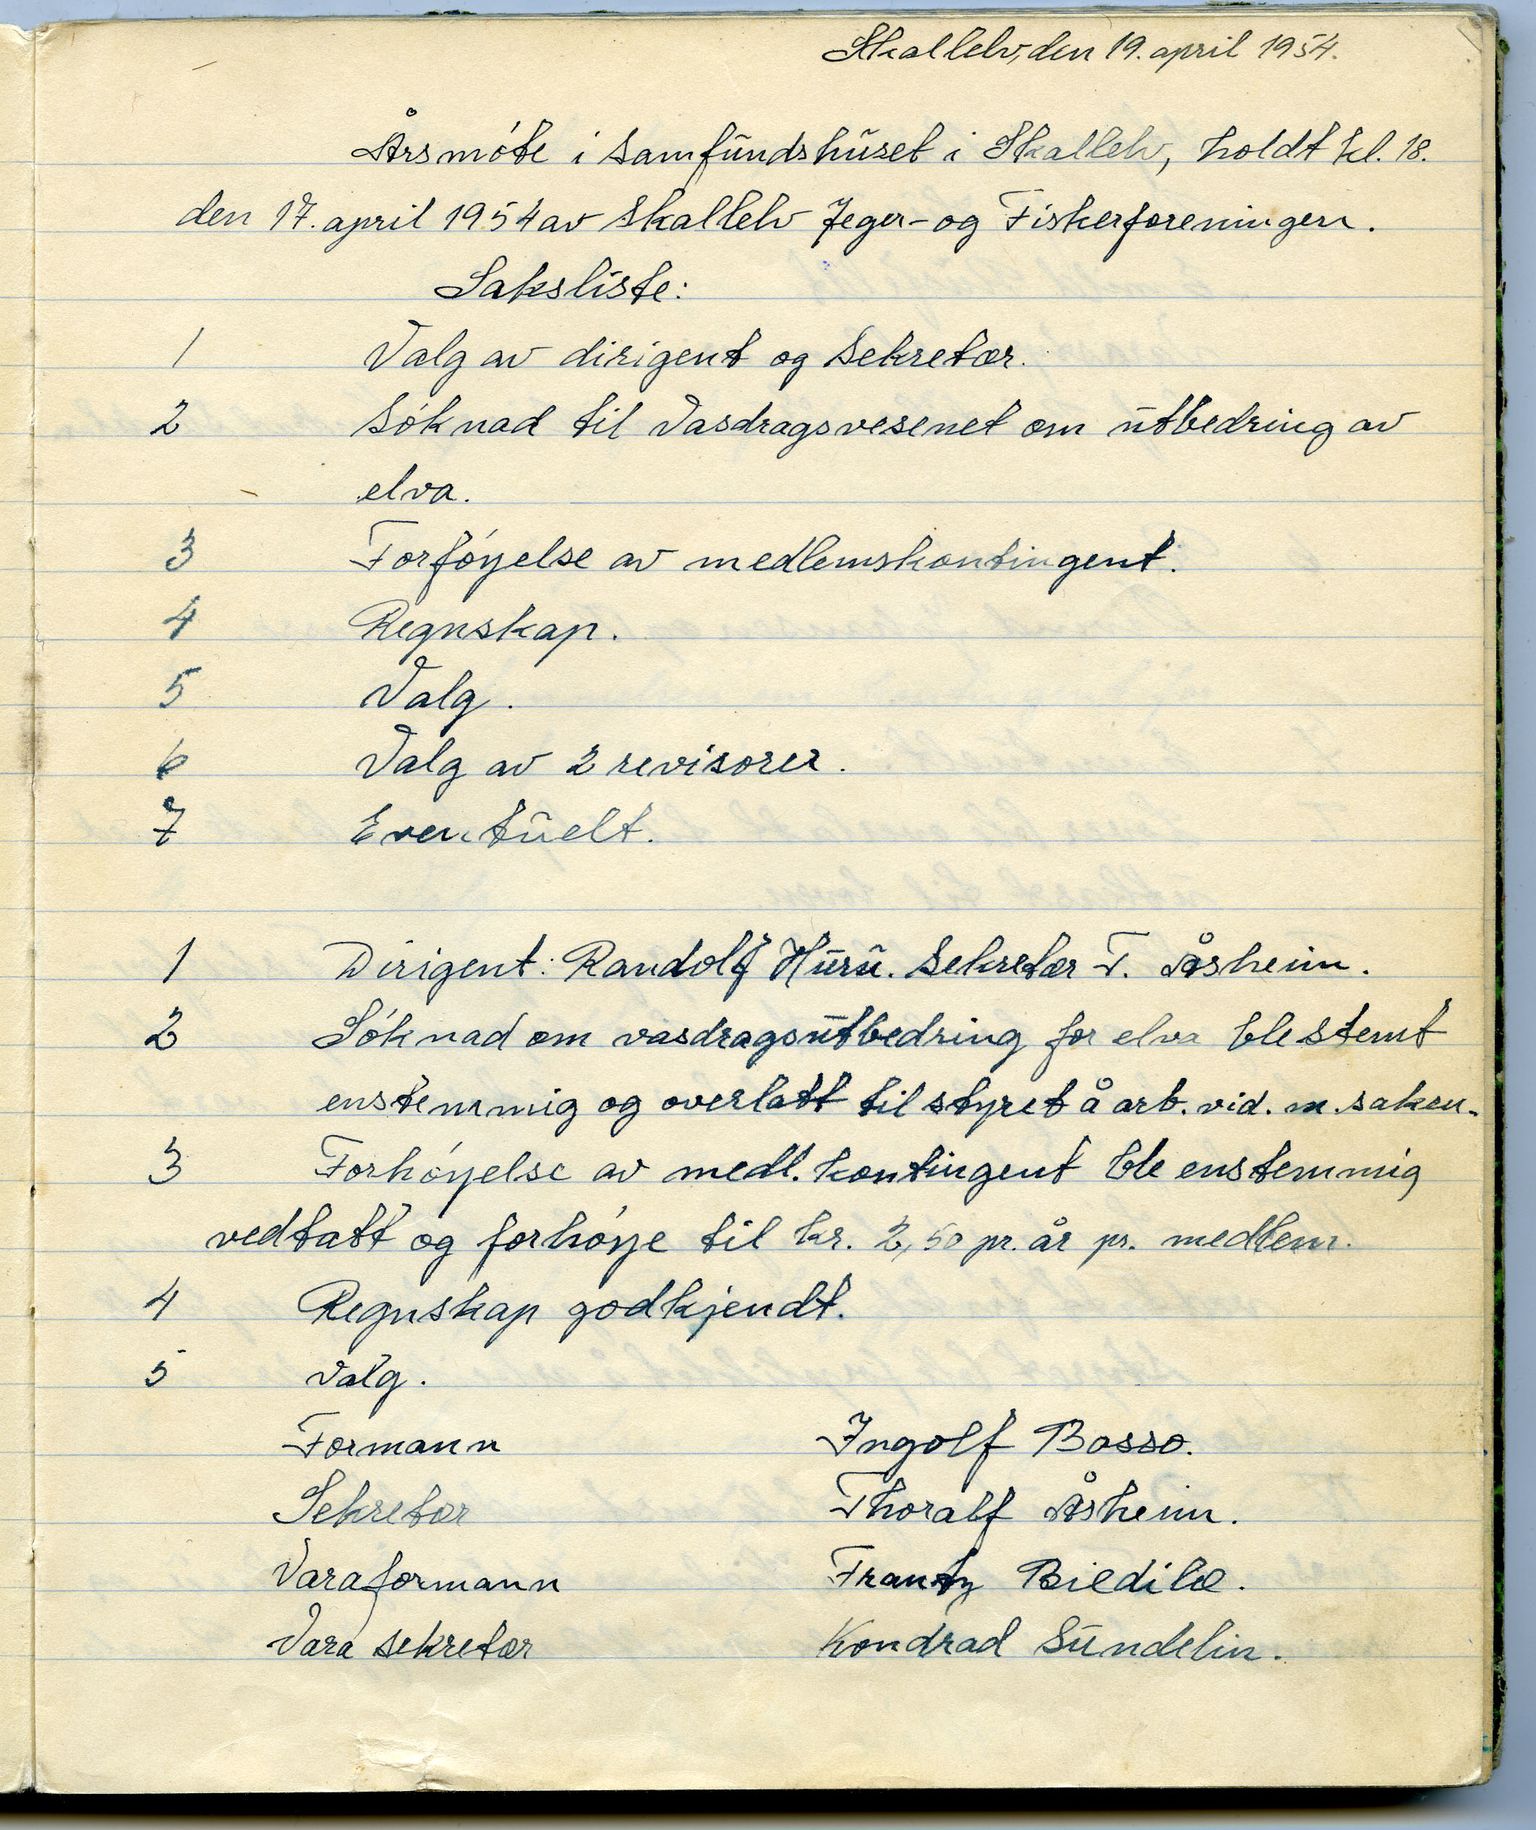 Skallelv, den 19. april 1954.
Årsmóte i Samfundshuset i Skallelv, holdt kl. 18.
den 17. april 1954 av Skallelv Jeger- og Fiskerforeningen.
Saksliste:
1 Valg av dirigent og Sekretær.
2 Sóknad til Vasdragsvesenet om utbedring av
elva.
3 Forfóyelse av medlemskontingent.
4 Regnskap.
5 Valg.
6 Valg av 2 revisorer.
7 Eventuelt.
1 Dirigent: Randolf Huru. Sekretær T. Åsheim.
2 Sóknad om vasdragsutbedring for elva ble stemt
enstemmig og overlatt til styret å arb. vid. m. saken.
3 Forhóyelse av medl. kontingent ble enstemmig
vedtatt og forhóye til kr. 2,50 pr. år pr. medlem.
4 Regnskap godkjendt.
5 Valg.
Formann Ingolf Basso.
Sekretær Thoralf Åsheim.
Varaformann Frantz Biedilæ.
Vara sekretær Kondrad Sundelin.